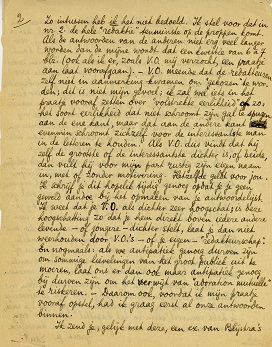 2
Zo intussen heb ik het niet bedoeld. Ik stel voor dat in
nr. 2. de hele "redaktie" tenminste op de proppen komt.
Als de antwoorden van de anderen niet erg veel langer
worden dan de mijne wordt dat een kwestie van 6 à 7
blz. (ook als ik er, zoals V.O. mij verzocht, een praatje
aan laat voorafgaan). — V.O. meende dat de redakteuren
zelf niet in aanmerking kwamen om "gekozen" te wor-
den; dit is niet mijn gevoel; ik zal wel iets in het
praatje vooraf zetten over "volstrekte eerlikheid" en zo:
het soort eerlikheid dat niet schroomt zijn gal te spugen
aan de ene kant, maar dat aan de andere kant
evenmin schroomt zichzelf voor de interessantste man
in de letteren te houden. Als V.O. dus vindt dat hij
zelf de grootste of de interessantste dichter is, of beide,
dan vult hij voor mijn part rustig zijn eigen naam
in, met of zonder motivering. Hetzelfde geldt voor jou.
Ik schrijf je dit hopelik tijdig genoeg opdat je je geen
geweld aandoe bij het opmaken van je antwoordenlijst.
Ik weet dat je V.O. als dichter zeer hoogschat; is deze
hoogschatting zo dat je hem direkt boven iedere andere
levende — of jongere — dichter stelt, laat je dan niet
weerhouden door V.O.'s — of je eigen — "redakteurschap".
En nogmaals: als we antipathiek genoeg durven zijn
om sommige lievelingen van het groot publiek uit te
moeren, laat ons er dan ook maar antipathiek genoeg
bij durven zijn om het verwijt van "adoration mutuelle"
te riskeren. — Daarom ook, voordat ik mijn praatje
vooraf opstel, had ik graag eerst al onze antwoorden
binnen.
Ik zend je, gelijk met deze, een ex. van Blijstra's